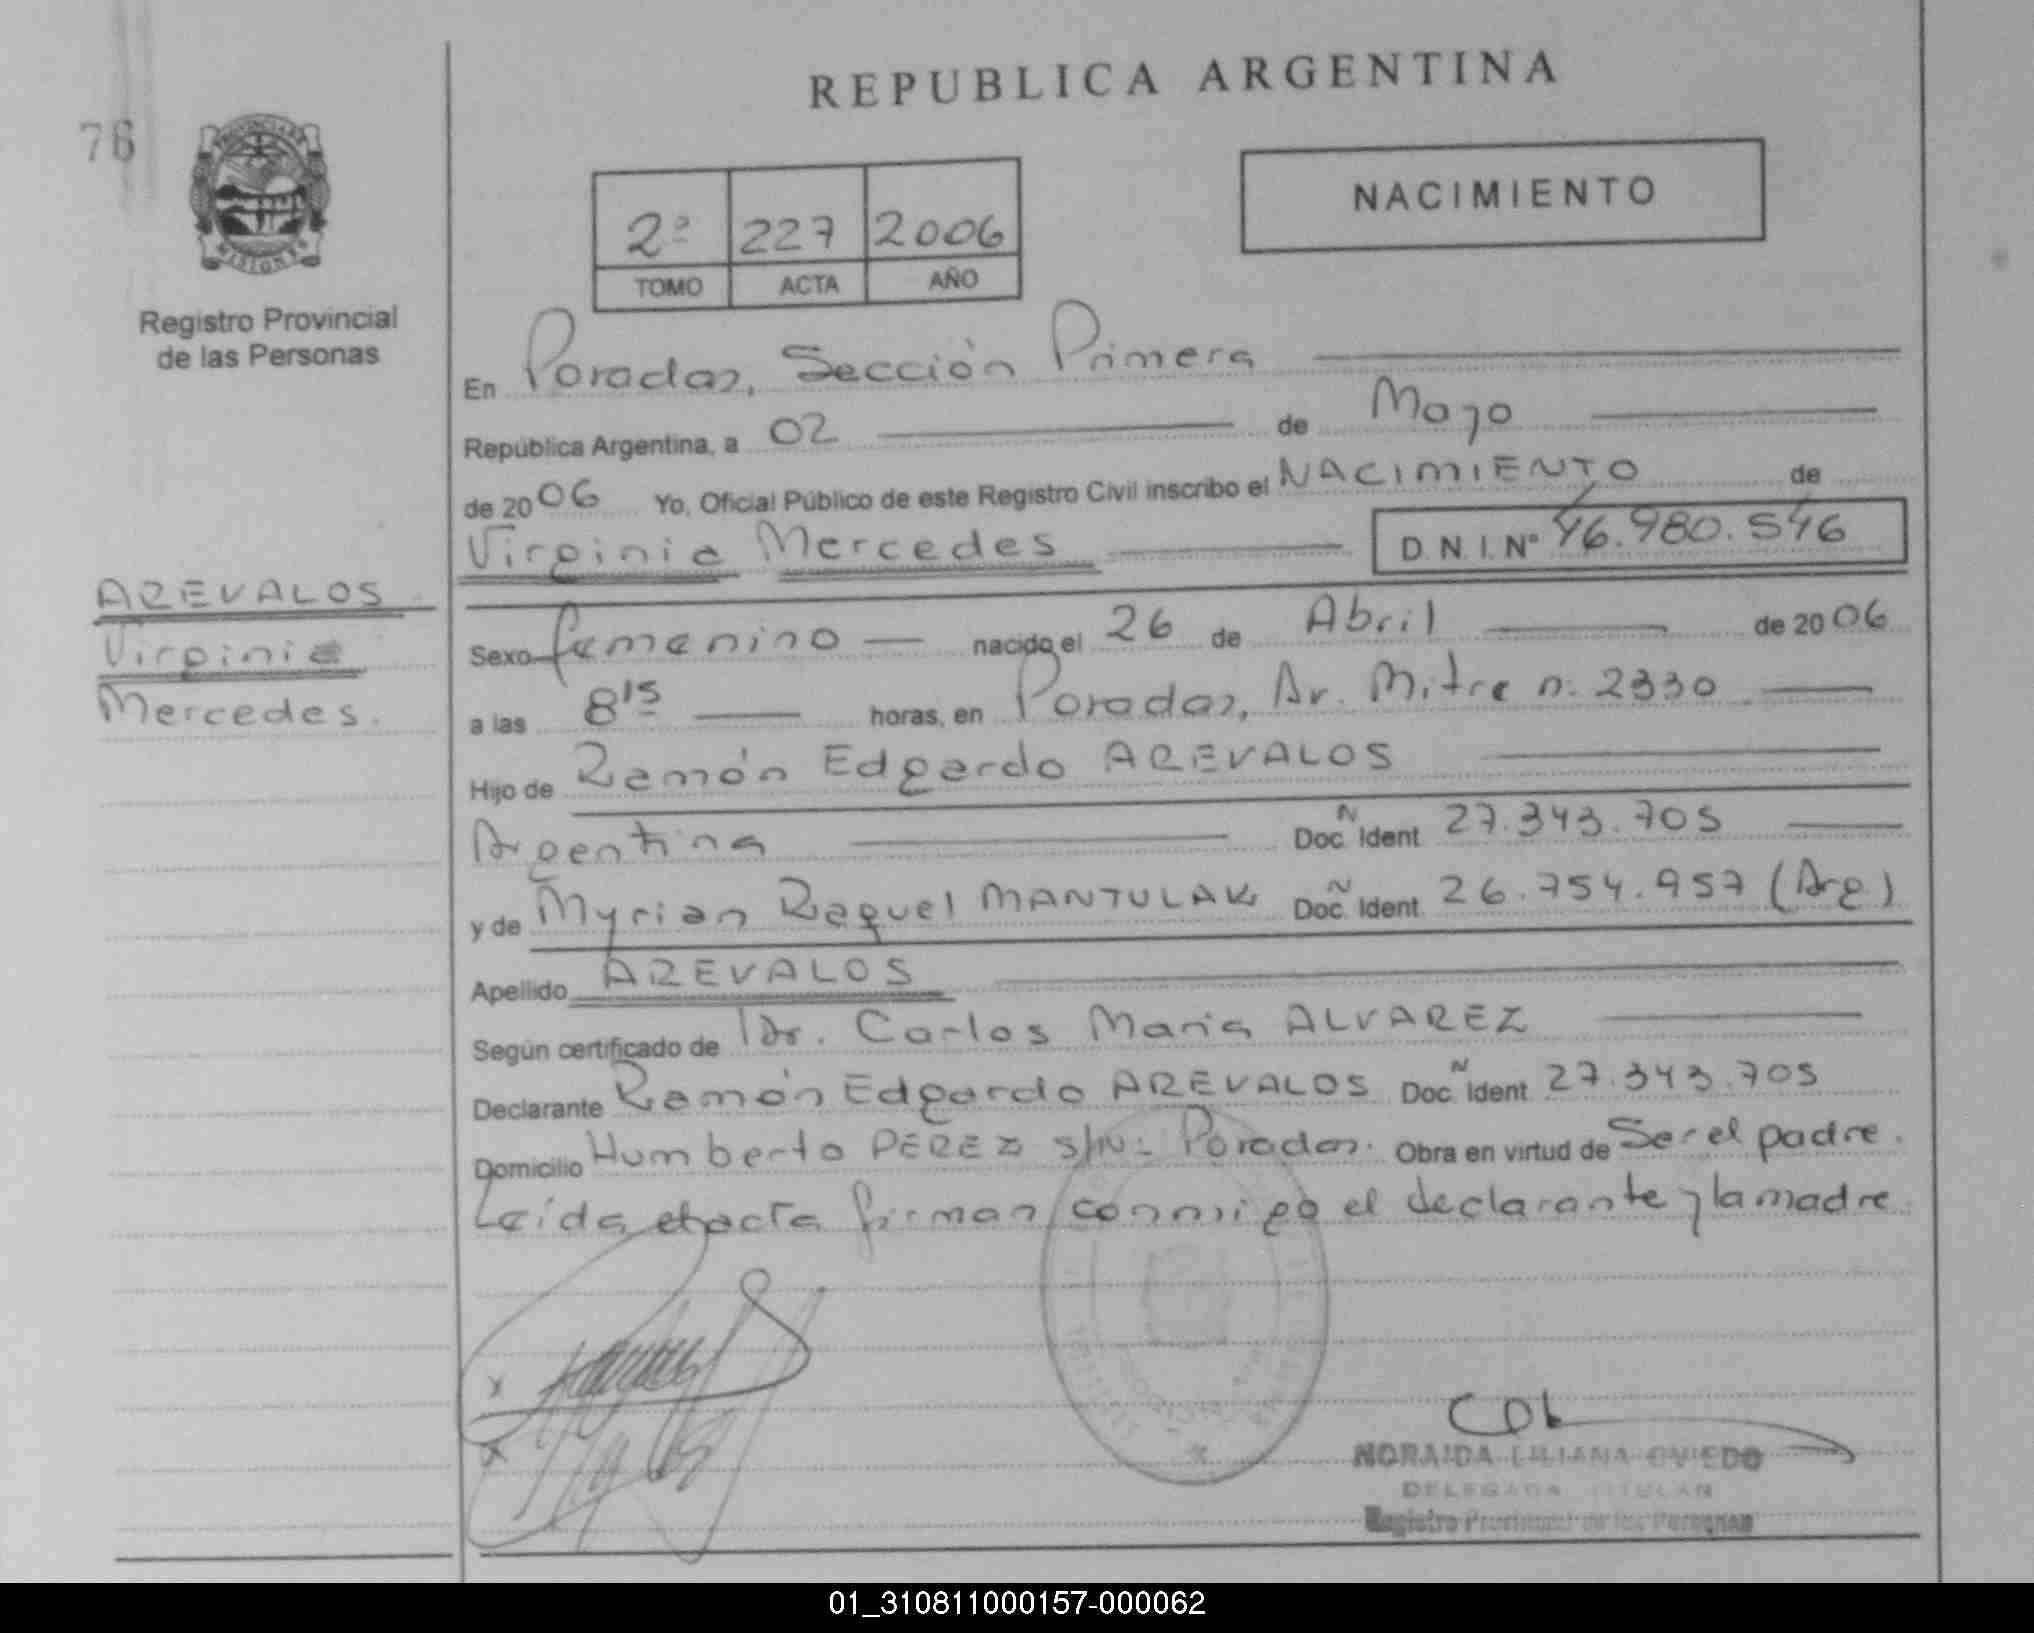 REPUBLICA ARGENTINA
76
NACIMIENTO
2º 227 2006
TOMO ACTA AÑO
Registro Provincial
de las Personas
En Posadas, Sección Primera
República Argentina, a 02 de Mayo
de 2006 Yo, Oficial Público de este Registro Civil inscribo el NACIMIENTO de
Virginia Mercedes D.N.I. Nº 46.980.546
AREVALOS
Virginia
Mercedes.
Sexo femenino nacido el 26 de Abril de 2006
a las 8 15 horas, en Posadas, Av. Mitre n: 2330
Hijo de Ramón Edgardo AREVALOS
Argentina Doc. Ident N 27.343.705
y de Myrian Raquel MANTULAK Doc. Ident N 26.754.957 (Arg)
Apellido AREVALOS
Según certificado de Dr. Carlos María ALVAREZ
Declarante Ramón Edgardo AREVALOS Doc. Ident N 27.343.705
Domicilio Humberto PEREZ S/Nº Posadas. Obra en virtud de Ser el padre.
Leída el acta firman conmigo el declarante y la madre.
x
x
NORAIDA LILIANA OVIEDO
DELEGADA TITULAR
Registro Provincial de las Personas
01_310811000157-000062